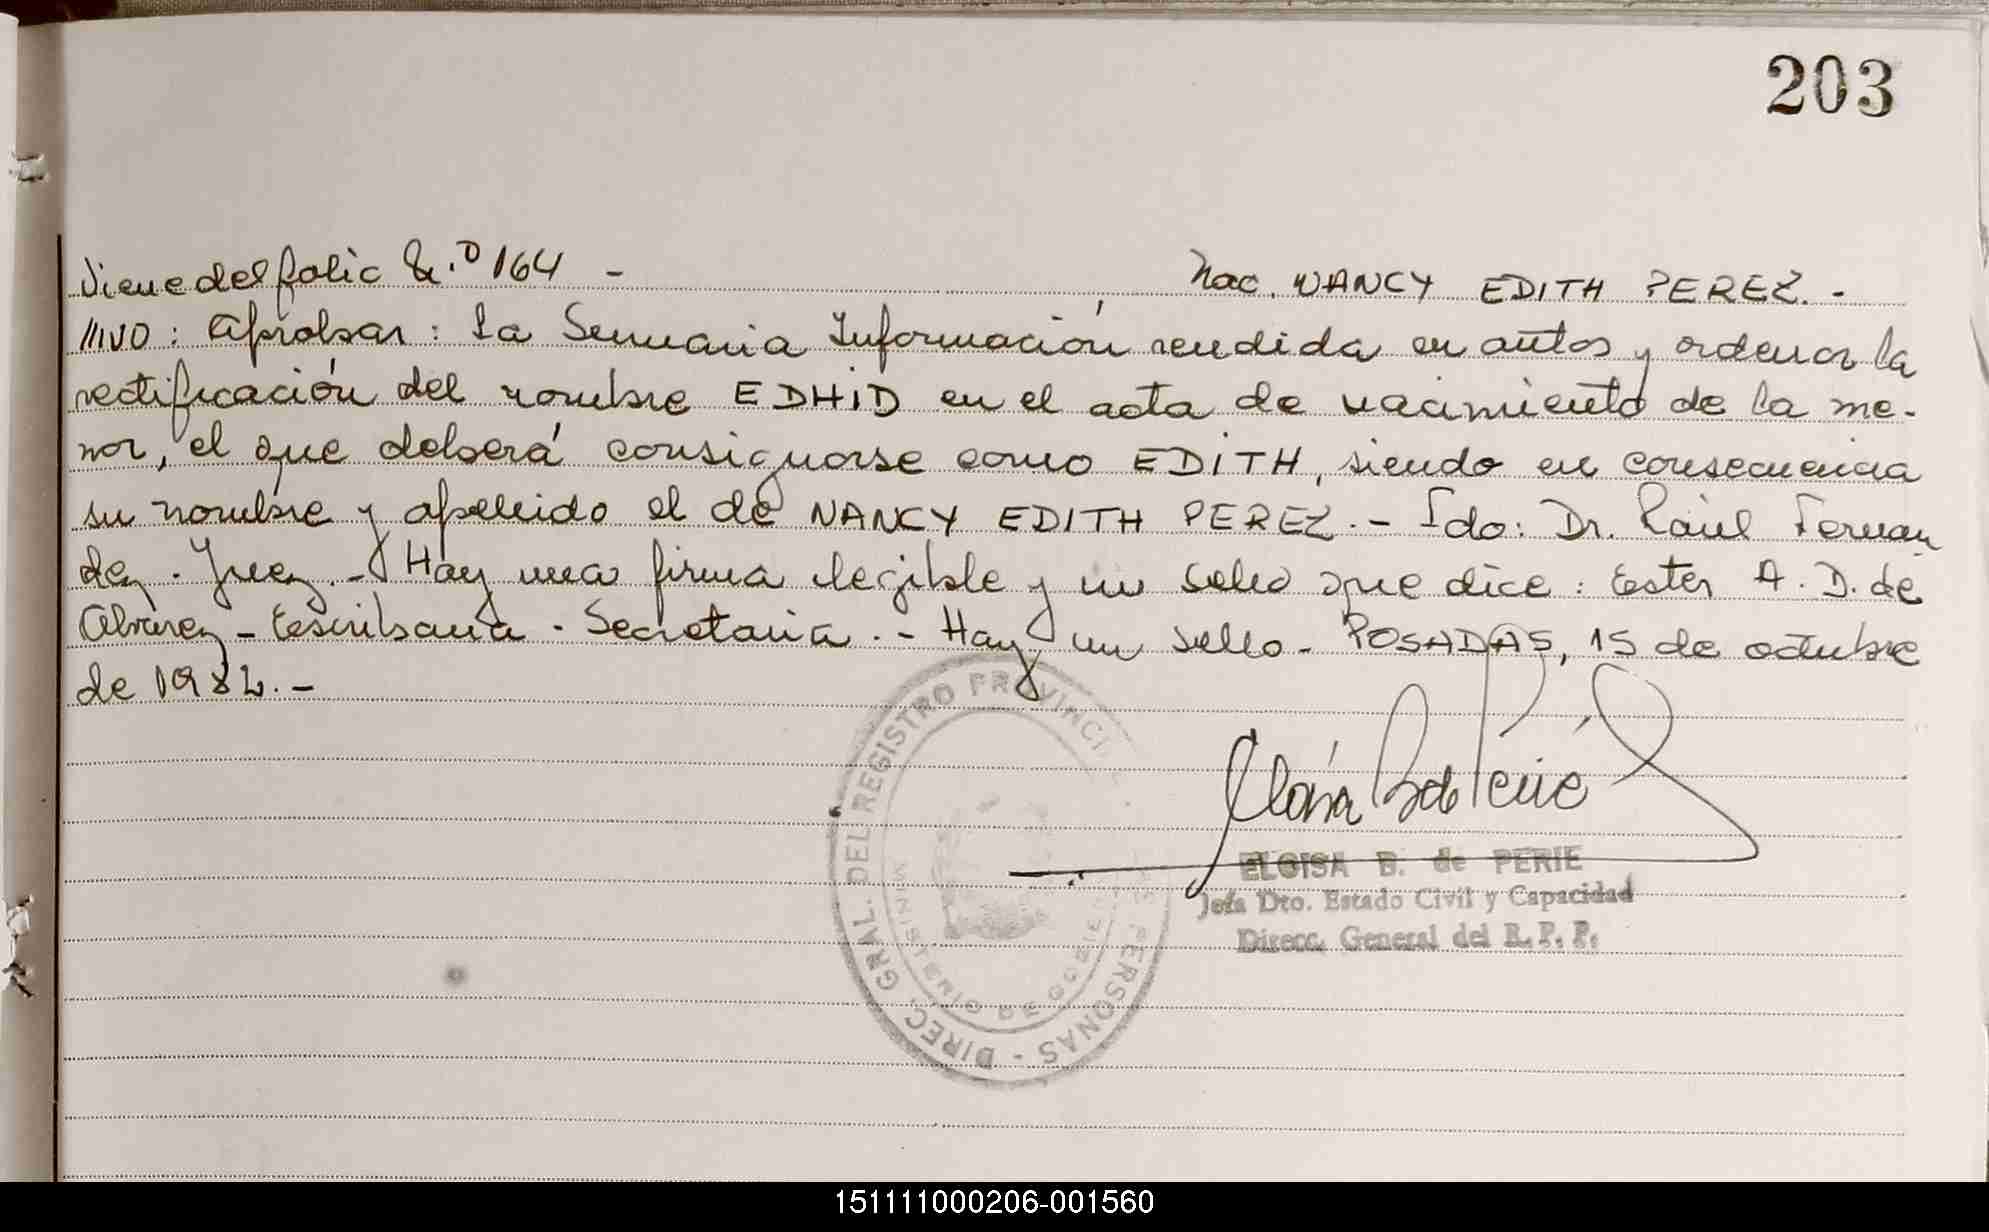 203
Viene del folio N.º 164 -
Nac. NANCY EDITH PEREZ. -
///VO: Aprobar: La Sumaria Información rendida en autos y ordenar la
rectificación del nombre EDHID en el acta de nacimiento de la me-
nor, el que deberá consignarse como EDITH, siendo en consecuencia
su nombre y apellido el de NANCY EDITH PEREZ. - Fdo: Dr. Raúl Fernan
dez. Juez. - Hay una firma ilegible y un sello que dice: Ester A. D. de
Alvarez - Escribana - Secretaria. - Hay un sello - POSADAS, 15 de octubre
de 1982. -
DIREC. GRAL. DEL REGISTRO PROVINCIAL PERSONAS -
MINISTERIO DE GOBIERNO
ELOISA B. de PERIE
Jefa Dto. Estado Civil y Capacidad
Direcc. General del R. P. P.
151111000206-001560